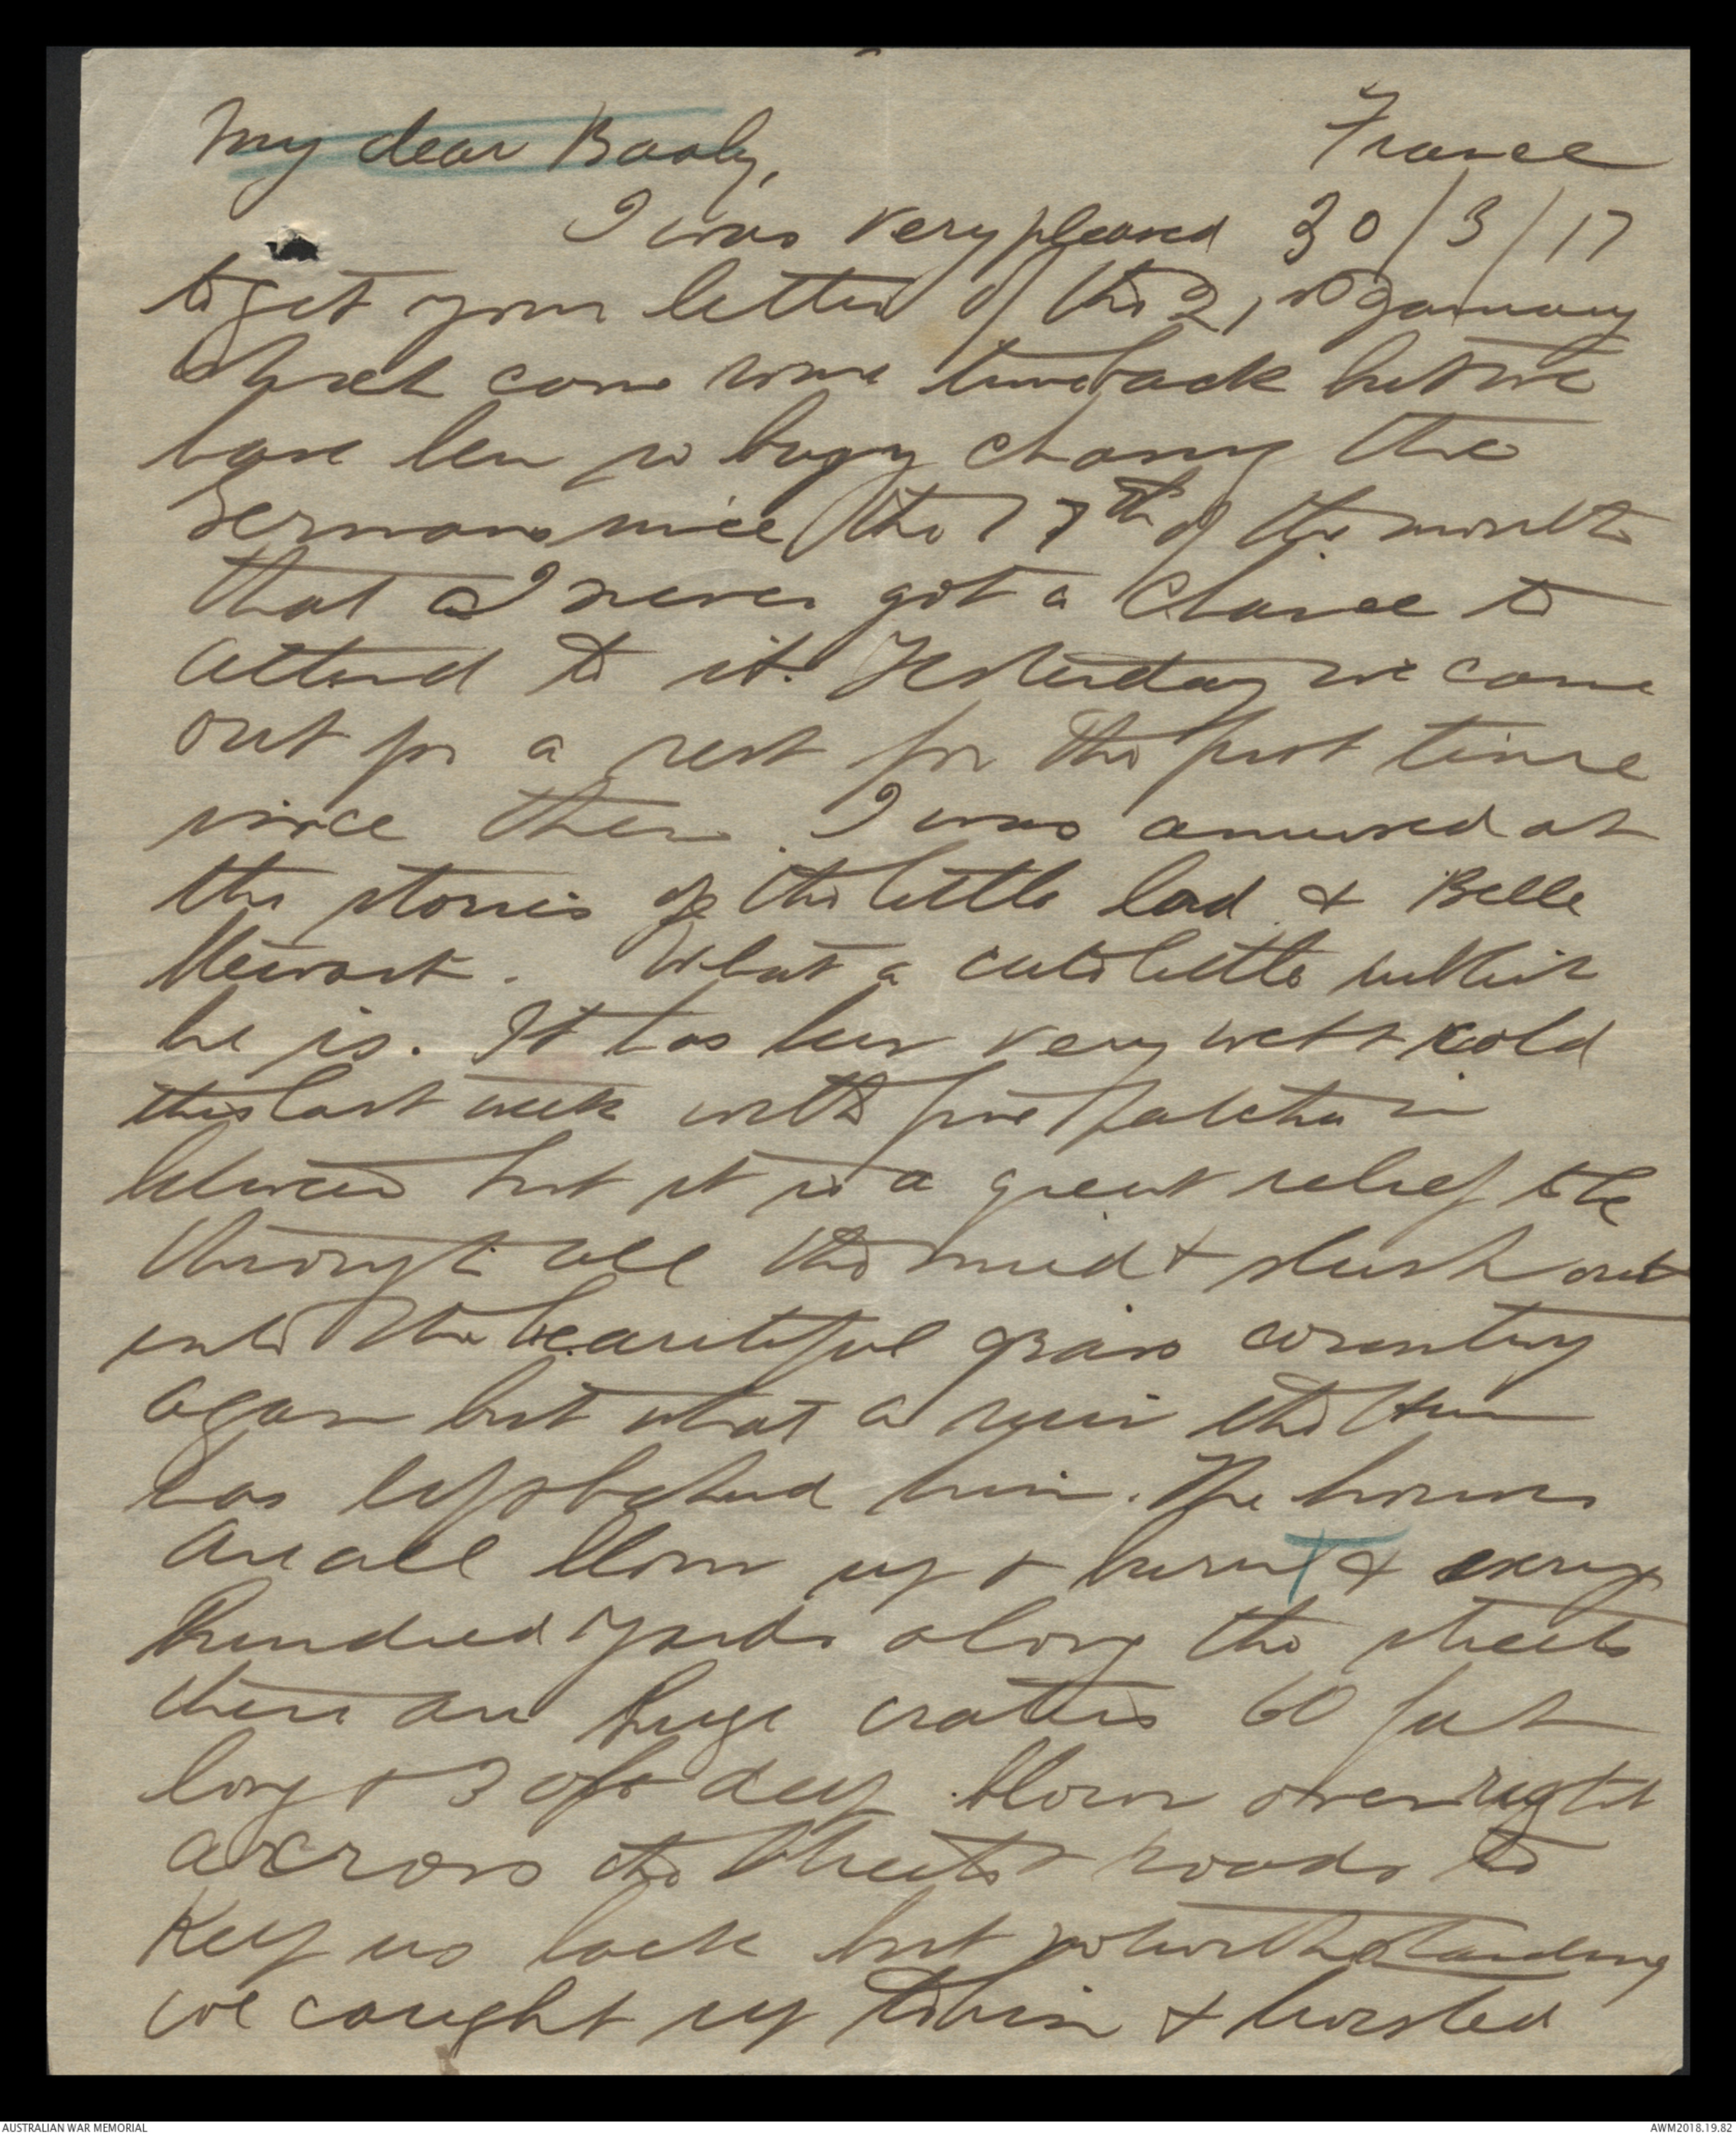 My dear Baaly,
France
I was very pleased 30/3/17
to get your letter of the 21st January
which came some time back but we
have been so busy chasing the
Germans since the 17th of the month
that I never got a chance to
attend to it. Yesterday we came
out for a rest for the first time
since then. I was amused at
the stories of the little lad & Belle
Stewart. What a cute little
he is. It has been very wet & cold
this last week with fine patches in
between but it is a great relief to be
through all the mud & slush out
into the beautiful grass country
again but what a ruin the Hun
has left behind him. The houses
are all blown up & burnt & every
hundred yards along the streets
there are huge craters 60 feet
long & 30 ft deep blown over right
across the streets & roads to
keep us back but notwithstanding
we caught up to him & hustled
AUSTRALIAN WAR MEMORIAL
AWM2018.19.82